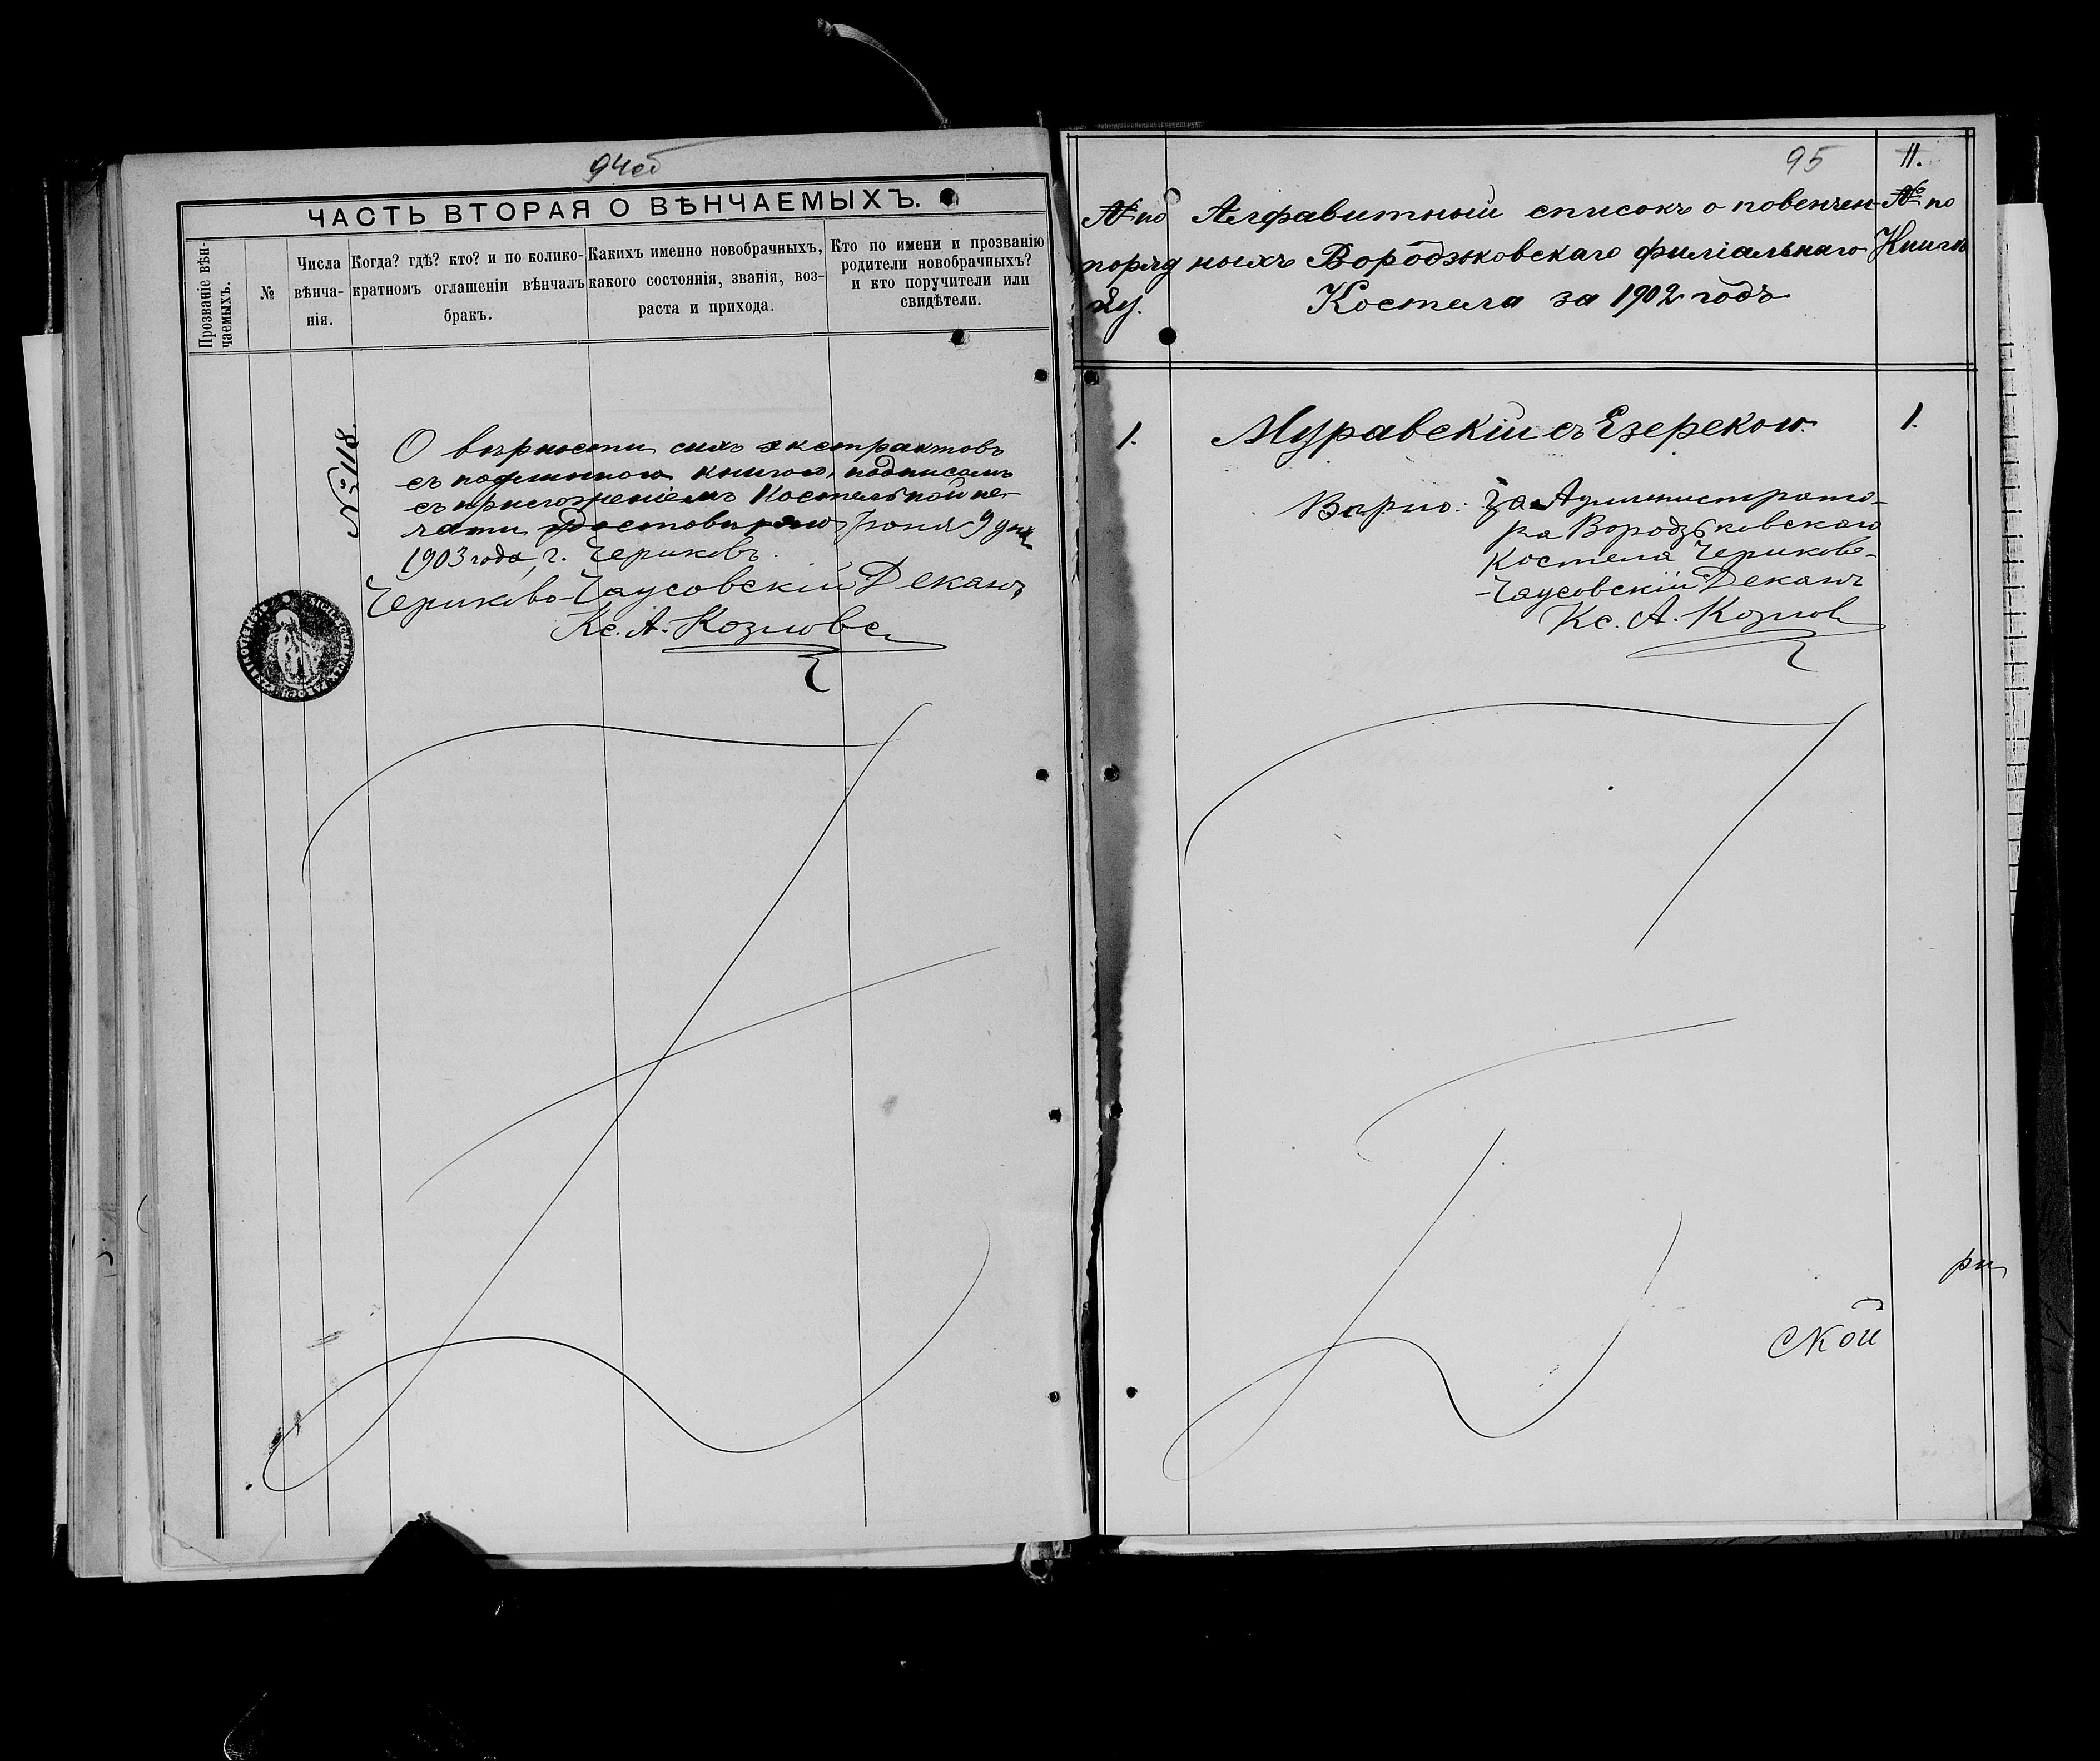 94об
ЧАСТЬ ВТОРАЯ О ВѢНЧАЕМЫХЪ.
Прозваніе вѣн-
чаемыхъ.
№
Числа
вѣнча-
нія.
Когда? гдѣ? кто? и по колико-
кратномъ оглашеніи вѣнчалъ
бракъ.
Какихъ именно новобрачныхъ,
какого состоянія, званія, воз-
раста и прихода.
Кто по имени и прозванію
родители новобрачныхъ?
и кто поручители или
свидѣтели.
№ 118.
О вѣрности сихъ экстрактовъ
съ подлинною книгою, подписомъ
съ приложеніемъ Костельной пе-
чати удостовѣряю Іюня 9 дня
1903 года, г. Чериковъ.
Чериково-Чаусовскій Деканъ
Кс. А. Козловс
95
II.
№ по
поряд
ку.
Алфавитный списокъ о повенчен-
ныхъ Вородзьковскаго филіальнаго
Костела за 1902 годъ
№ по
Книгѣ
1.
Муравскій съ Езерскою.
1.
Вѣрно: За Администрато-
ра Вородзьковскаго
Костела Чериково-
-Чаусовскій Деканъ
Кс. А. Козлов
ри
ской